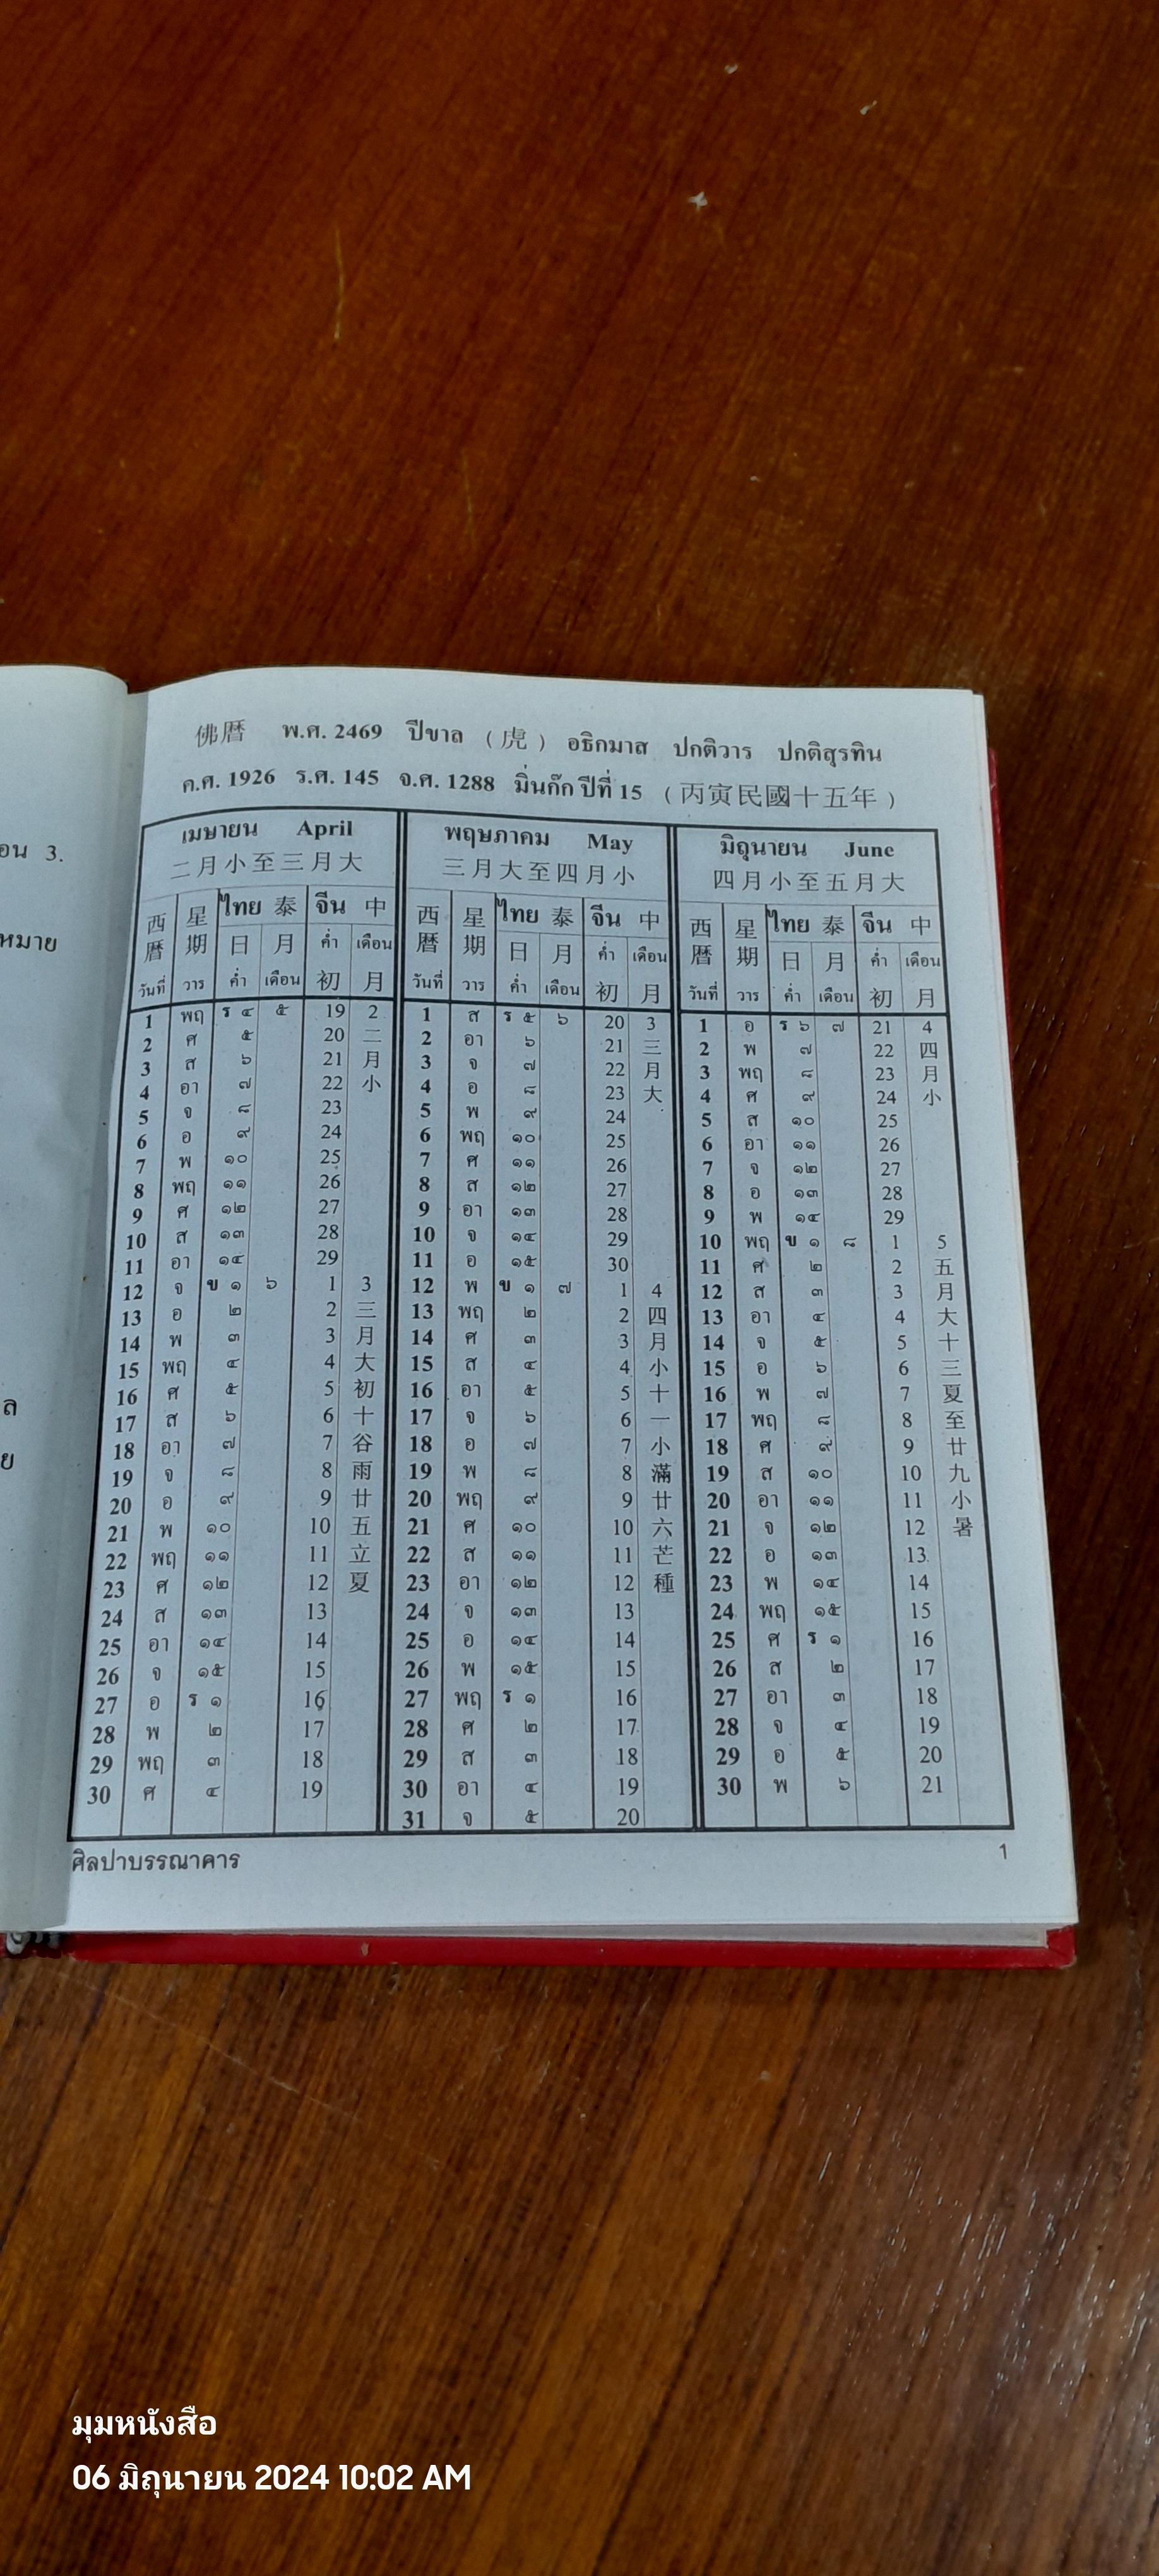 อน 3.
หมาย
ล
ย
佛曆 พ.ศ. 2469 ปีขาล (虎) อธิกมาส ปกติวาร ปกติสุรทิน
ค.ศ. 1926 ร.ศ. 145 จ.ศ. 1288 มิ่นก๊ก ปีที่ 15 (丙寅民國十五年)
เมษายน April พฤษภาคม May มิถุนายน June
二月小至三月大 三月大至四月小 四月小至五月大
西曆 星期 ไทย 泰 จีน 中 西曆 星期 ไทย 泰 จีน 中 西曆 星期 ไทย 泰 จีน 中
日 月 ค่ำ เดือน 日 月 ค่ำ เดือน 日 月 ค่ำ เดือน
วันที่ วาร ค่ำ เดือน 初 月 วันที่ วาร ค่ำ เดือน 初 月 วันที่ วาร ค่ำ เดือน 初 月
1 พฤ ร ๔ ๕ 19 2 1 ส ร ๕ ๖ 20 3 1 อ ร ๖ ๗ 21 4
2 ศ ๕ 20 二 2 อา ๖ 21 三 2 พ ๗ 22 四
3 ส ๖ 21 月 3 จ ๗ 22 月 3 พฤ ๘ 23 月
4 อา ๗ 22 小 4 อ ๘ 23 大 4 ศ ๙ 24 小
5 จ ๘ 23 5 พ ๙ 24 5 ส ๑๐ 25
6 อ ๙ 24 6 พฤ ๑๐ 25 6 อา ๑๑ 26
7 พ ๑๐ 25 7 ศ ๑๑ 26 7 จ ๑๒ 27
8 พฤ ๑๑ 26 8 ส ๑๒ 27 8 อ ๑๓ 28
9 ศ ๑๒ 27 9 อา ๑๓ 28 9 พ ๑๔ 29
10 ส ๑๓ 28 10 จ ๑๔ 29 10 พฤ ข ๑ ๘ 1 5
11 อา ๑๔ 29 11 อ ๑๕ 30 11 ศ ๒ 2 五
12 จ ข ๑ ๖ 1 3 12 พ ข ๑ ๗ 1 4 12 ส ๓ 3 月
13 อ ๒ 2 三 13 พฤ ๒ 2 四 13 อา ๔ 4 大
14 พ ๓ 3 月 14 ศ ๓ 3 月 14 จ ๕ 5 十
15 พฤ ๔ 4 大 15 ส ๔ 4 小 15 อ ๖ 6 三
16 ศ ๕ 5 初 16 อา ๕ 5 十 16 พ ๗ 7 夏
17 ส ๖ 6 十 17 จ ๖ 6 一 17 พฤ ๘ 8 至
18 อา ๗ 7 谷 18 อ ๗ 7 小 18 ศ ๙ 9 廿
19 จ ๘ 8 雨 19 พ ๘ 8 滿 19 ส ๑๐ 10 九
20 อ ๙ 9 廿 20 พฤ ๙ 9 廿 20 อา ๑๑ 11 小
21 พ ๑๐ 10 五 21 ศ ๑๐ 10 六 21 จ ๑๒ 12 暑
22 พฤ ๑๑ 11 立 22 ส ๑๑ 11 芒 22 อ ๑๓ 13
23 ศ ๑๒ 12 夏 23 อา ๑๒ 12 種 23 พ ๑๔ 14
24 ส ๑๓ 13 24 จ ๑๓ 13 24 พฤ ๑๕ 15
25 อา ๑๔ 14 25 อ ๑๔ 14 25 ศ ร ๑ 16
26 จ ๑๕ 15 26 พ ๑๕ 15 26 ส ๒ 17
27 อ ร ๑ 16 27 พฤ ร ๑ 16 27 อา ๓ 18
28 พ ๒ 17 28 ศ ๒ 17 28 จ ๔ 19
29 พฤ ๓ 18 29 ส ๓ 18 29 อ ๕ 20
30 ศ ๔ 19 30 อา ๔ 19 30 พ ๖ 21
31 จ ๕ 20
ศิลปาบรรณาคาร 1
มุมหนังสือ
06 มิถุนายน 2024 10:02 AM